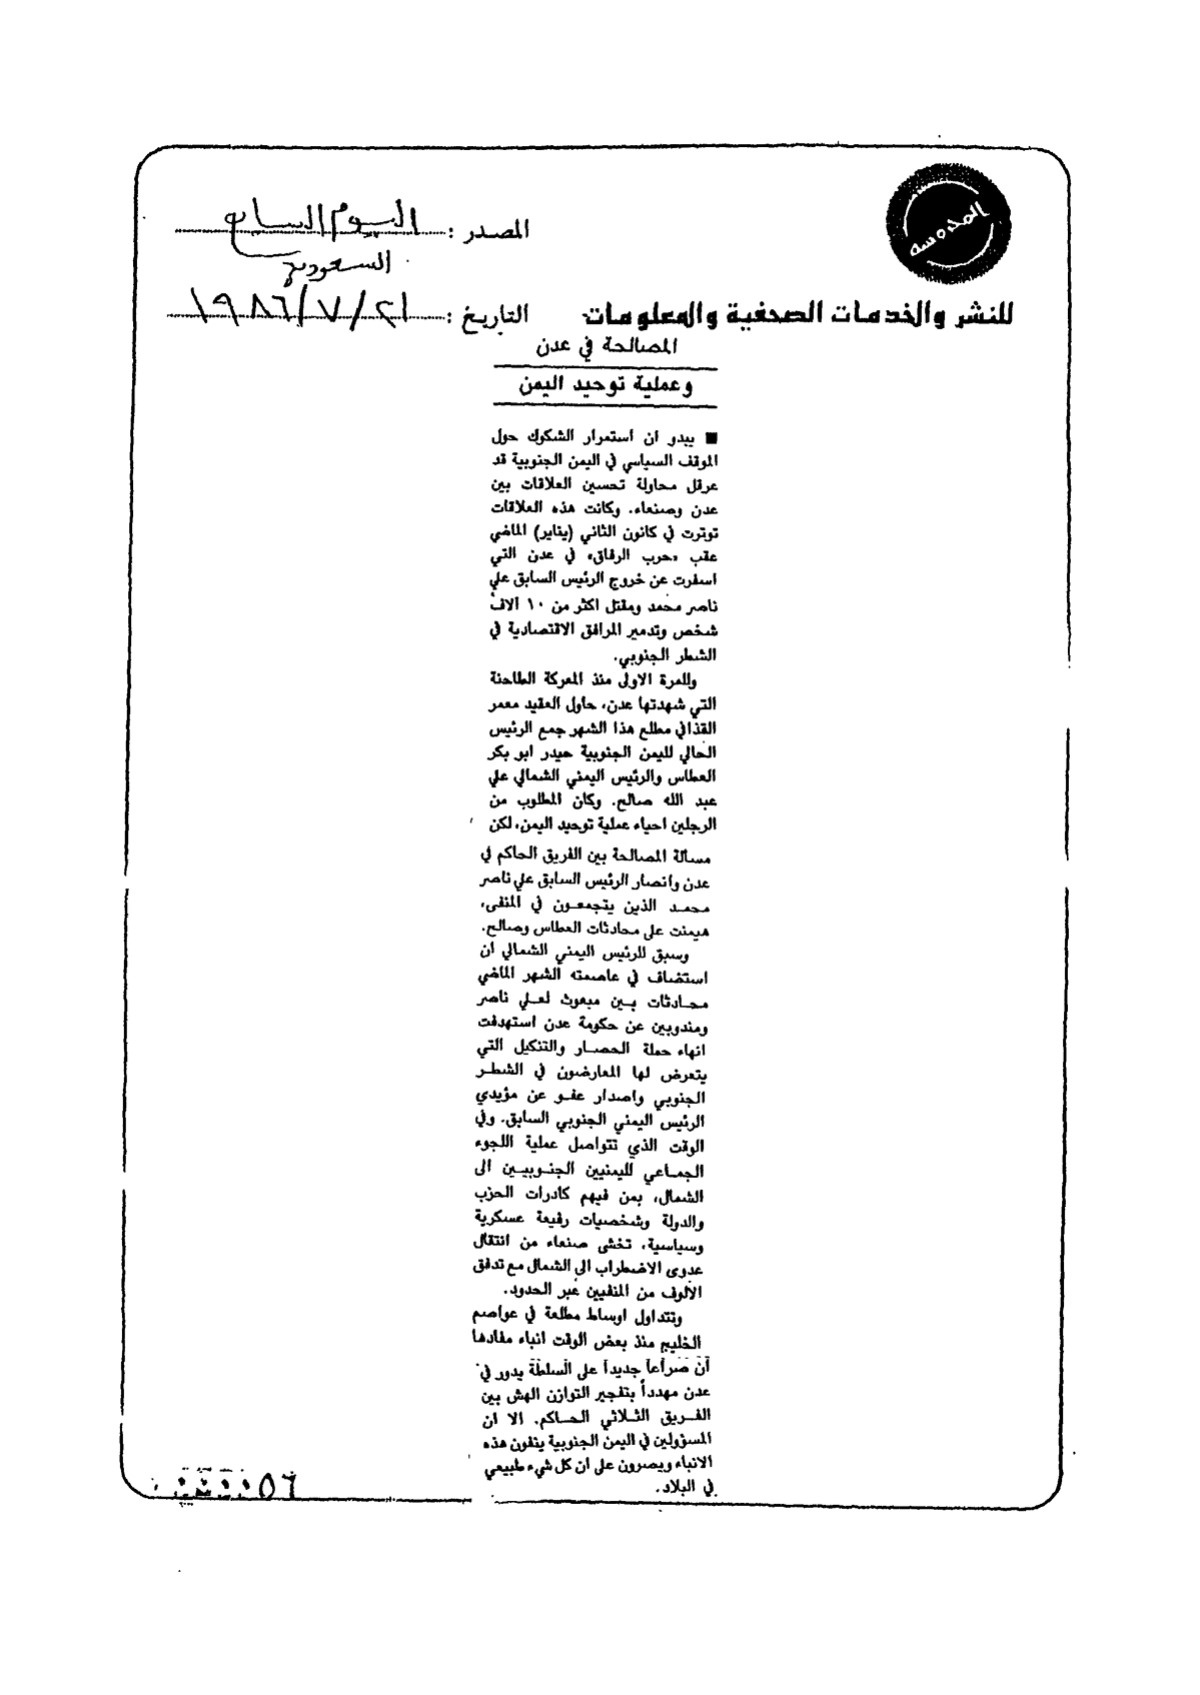 المصدر : اليوم السابع
السعودية
للنشر والخدمات الصحفية والمعلومات
التاريخ : ٢١/٧/١٩٨٦
المصالحة في عدن
وعملية توحيد اليمن
■ يبدو ان استمرار الشكوك حول
الموقف السياسي في اليمن الجنوبية قد
عرقل محاولة تحسين العلاقات بين
عدن وصنعاء. وكانت هذه العلاقات
توترت في كانون الثاني (يناير) الماضي
عقب «حرب الرفاق» في عدن التي
اسفرت عن خروج الرئيس السابق علي
ناصر محمد ومقتل اكثر من ١٠ آلاف
شخص وتدمير المرافق الاقتصادية في
الشطر الجنوبي.
وللمرة الاولى منذ المعركة الطاحنة
التي شهدتها عدن، حاول العقيد معمر
القذافي مطلع هذا الشهر جمع الرئيس
الحالي لليمن الجنوبية حيدر ابو بكر
العطاس والرئيس اليمني الشمالي علي
عبد الله صالح. وكان المطلوب من
الرجلين احياء عملية توحيد اليمن، لكن
مسألة المصالحة بين الفريق الحاكم في
عدن وانصار الرئيس السابق علي ناصر
محمد الذين يتجمعون في المنفى،
هيمنت على محادثات العطاس وصالح.
وسبق للرئيس اليمني الشمالي ان
استضاف في عاصمته الشهر الماضي
محادثات بين مبعوث لعلي ناصر
ومندوبين عن حكومة عدن استهدفت
انهاء حملة الحصار والتنكيل التي
يتعرض لها المعارضون في الشطر
الجنوبي واصدار عفو عن مؤيدي
الرئيس اليمني الجنوبي السابق. وفي
الوقت الذي تتواصل عملية اللجوء
الجماعي لليمنيين الجنوبيين الى
الشمال، بمن فيهم كادرات الحزب
والدولة وشخصيات رفيعة عسكرية
وسياسية، تخشى صنعاء من انتقال
عدوى الاضطراب الى الشمال مع تدفق
الالوف من المنفيين عبر الحدود.
وتتداول اوساط مطلعة في عواصم
الخليج منذ بعض الوقت انباء مفادها
أن صراعاً جديداً على السلطة يدور في
عدن مهدداً بتفجير التوازن الهش بين
الفريق الثلاثي الحاكم. الا ان
المسؤولين في اليمن الجنوبية ينفون هذه
الانباء ويصرون على ان كل شيء طبيعي
في البلاد.